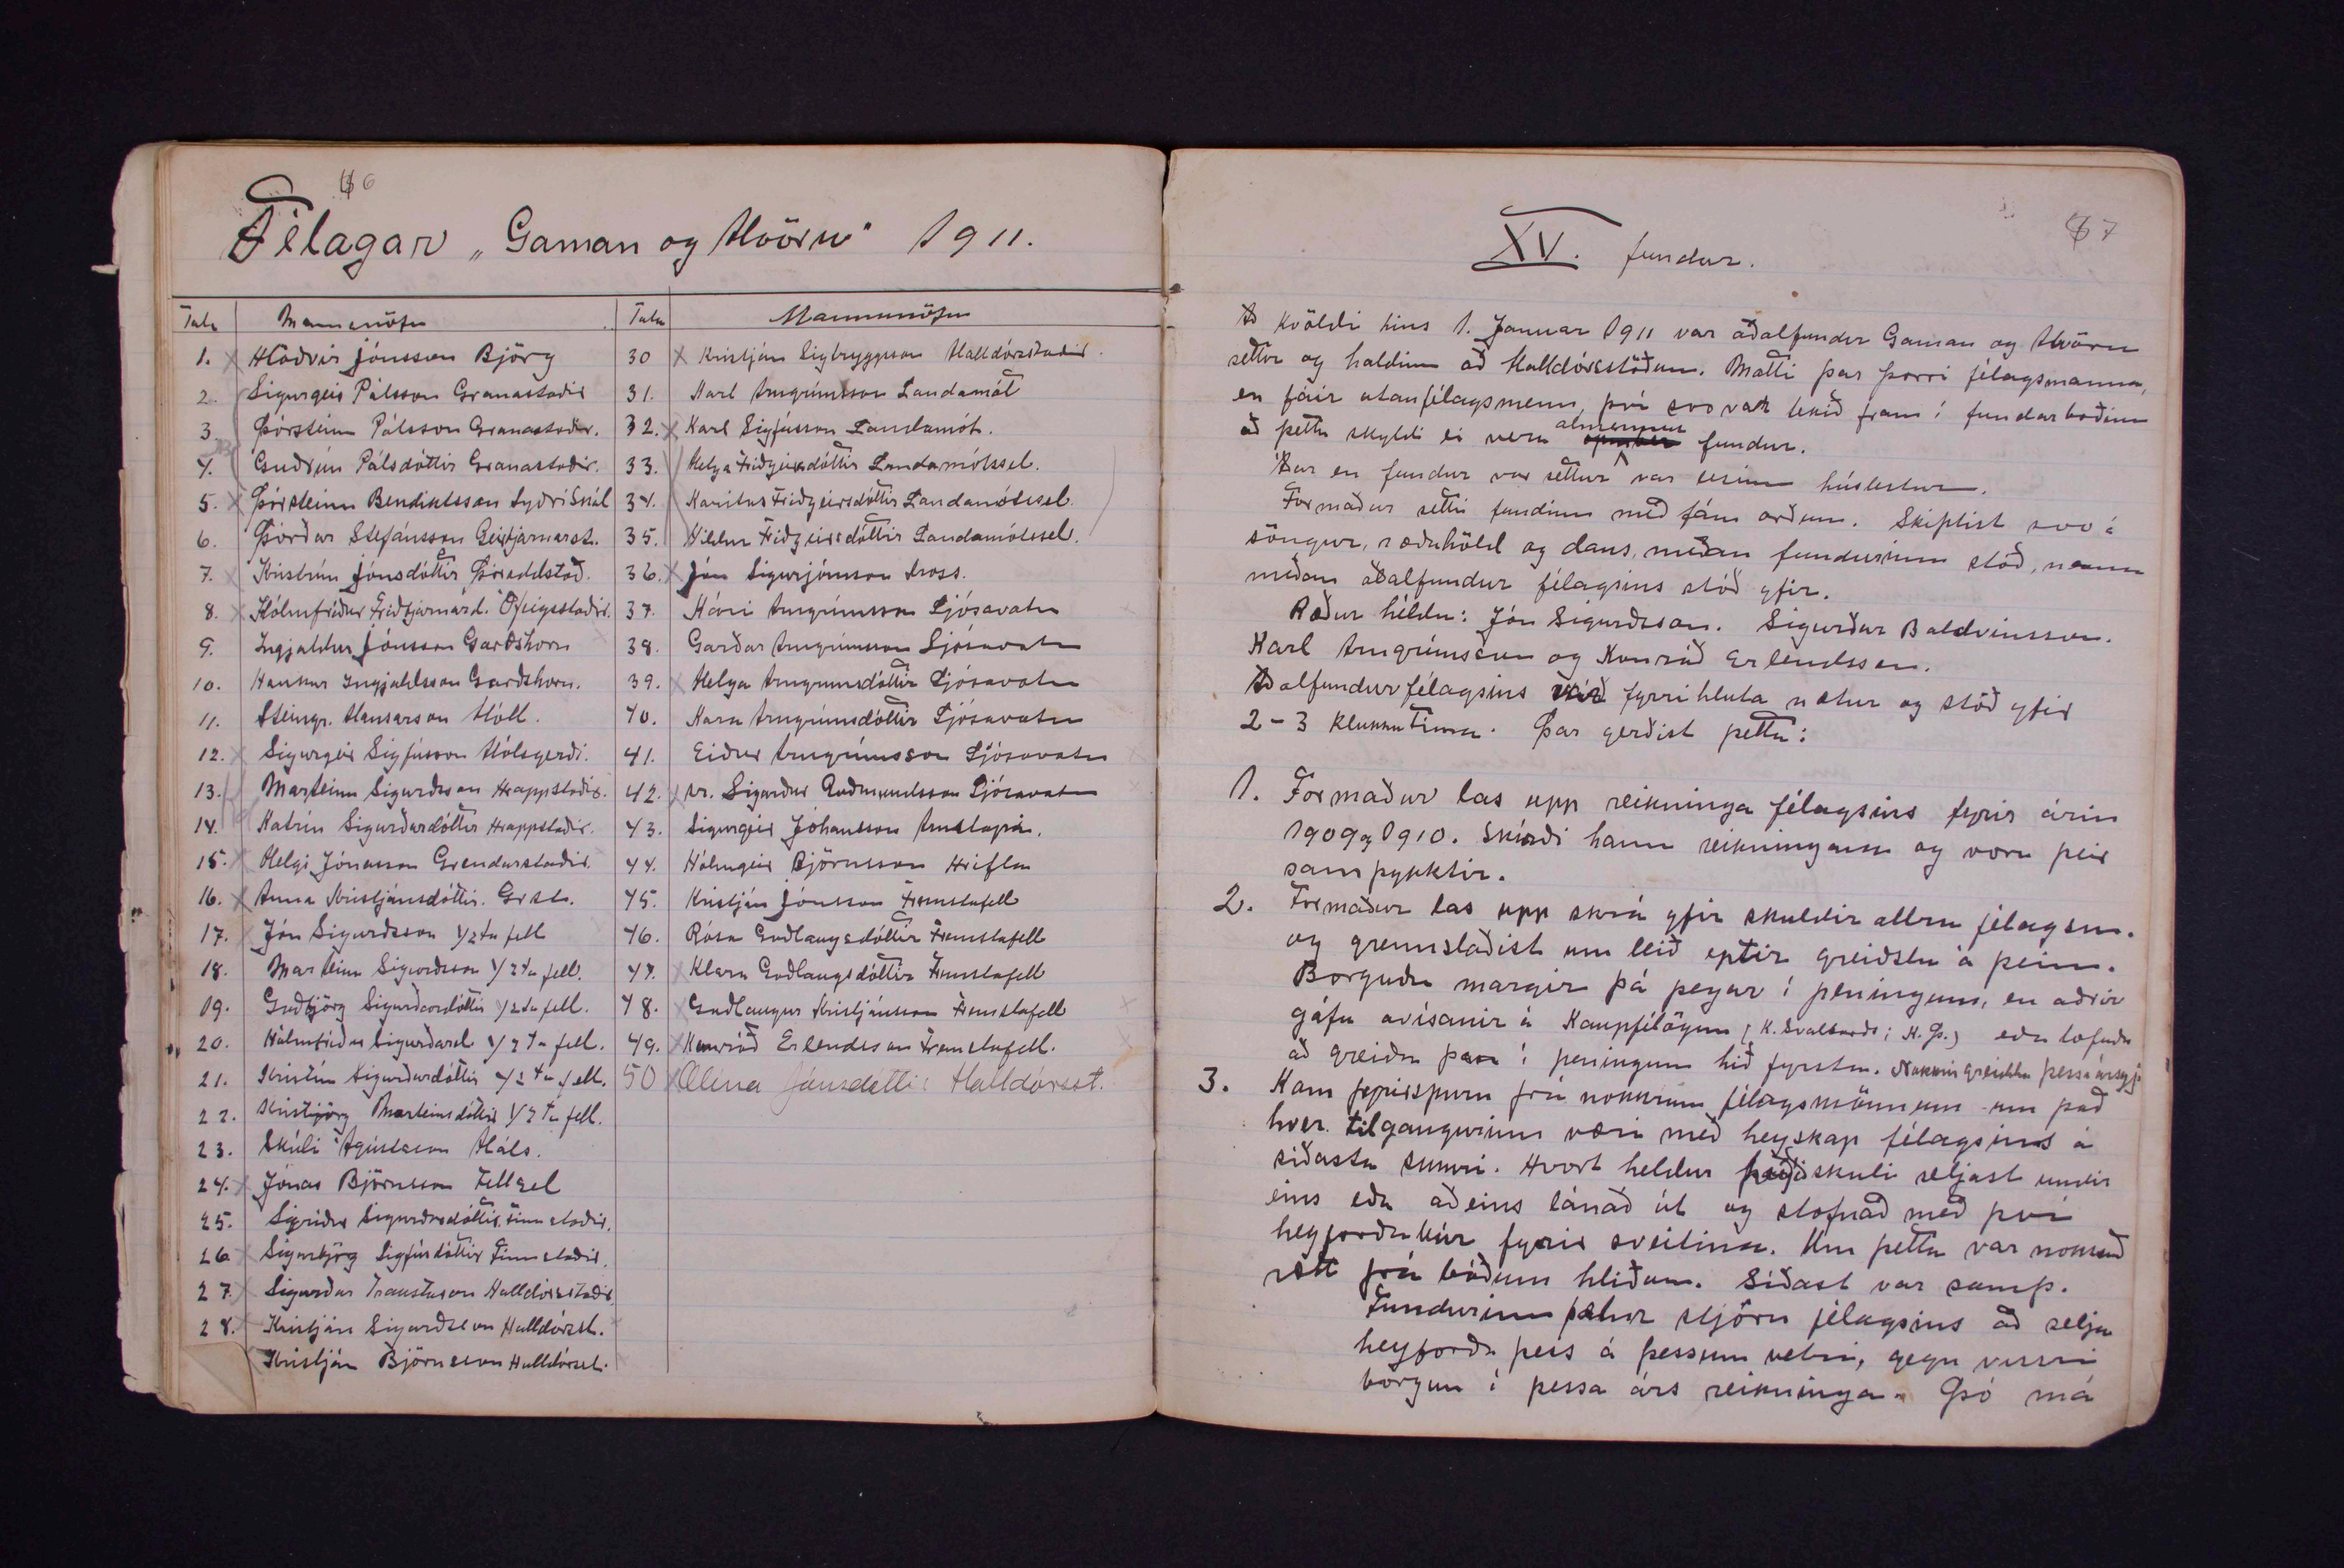 66
Félagar „Gaman og Alvöru" 1911.
Tala Mannanöfn Tala Mannanöfn
1. x Hlaðvir Jónsson Björg
2. Sigurgeir Pálsson Granastaðir
3. Þórsteinn Pálsson Granastaðir.
4. Guðrún Pálsdóttir Granastaðir.
5. x Þórsteinn Bendiktsson Syðri Skál
6. Þórður Stefánsson Geirbjarnarst.
7. x Kristrún Jónsdóttir Þóroddstað.
8. x Hólmfríður Friðbjarnard. Ófeigsstaðir.
9. Ingjaldur Jónsson Garðshorn
10. Haukur Ingjaldsson Garðshorn.
11. Steingr. Hansarson Hóll.
12. x Sigurgeir Sigfússon Hólsgerði.
13. Marteinn Sigurðsson Hrappstaðir.
14. Katrín Sigurðardóttir Hrappstaðir.
15. x Helgi Jónasson Grendarstaðir.
16. x Anna Kristjánsdóttir. Grst.
17. Jón Sigurðsson 1/2 ta fell
18. Marteinn Sigurðsson 1/2 ta fell.
19. Guðbjörg Sigurðardóttir 1/2 ta fell.
20. Hólmfríður Sigurðard. 1/2 ta fell.
21. Kristín Sigurðardóttir 1/2 ta fell.
22. Kristbjörg Marteinsdóttir 1/2 ta fell.
23. Skúli Ágústsson Háls.
24. x Jónas Björnsson Fellsel
25. Sigríður Sigurðardóttir Finnstaðir.
26. x Sigurbjörg Sigfúsdóttir Finnstaðir.
27. x Sigurður Traustason Halldórsstaðir
28. x Kristján Sigurðsson Halldórsst.
Kristján Björnsson Halldórsst.
30 x Kristján Sigtryggsson Halldórsstaðir.
31. Karl Arngrímsson Landamót
32. x Karl Sigfússon Landamót.
33. Helga Friðgeirsdóttir Landamótssel.
34. Karitas Friðgeirsdóttir Landamótssel.
35. Hildur Friðgeirsdóttir Landamótssel.
36. x Jón Sigurjónsson Kross.
37. Kári Arngrímsson Ljósavatn
38. Garðar Arngrímsson Ljósavatn
39. x Helga Arngrímsdóttir Ljósavatn
40. Kara Arngrímsdóttir Ljósavatn
41. Eiður Arngrímsson Ljósavatn
42. x sr. Sigurður Guðmundsson Ljósavatn
43. Sigurgeir Jóhansson Arnstapa.
44. Hólmgeir Björnsson Hrifla
45. Kristján Jónsson Fremstafell
46. Rósa Guðlaugsdóttir Fremstafell
47. x Klara Guðlaugsdóttir Fremstafell
48. x Guðlaugur Kristjánsson Fremstafell
49. x Konráð Erlendsson Fremstafell.
50 x Elína Jónsdóttir Halldórsst.
67
XV. fundur.
Að kvöldi hins 1. Januar 1911 var aðalfundur Gaman og Alvöru
settur og haldinn að Halldórsstöðum. Mætti þar þorri félagsmanna,
en fáir utanfélagsmenn, því svo var tekið fram í fundarboðinu
að þetta skyldi ei vera almennur fundur.
Áður en fundur var settur var lesinn húslestur.
Formaður setti fundinn með fám orðum. Skiptist svo á
söngur, ræðuhöld og dans, meðan fundurinn stóð, nema
meðan aðalfundur félagsins stóð yfir.
Ræður héldu: Jón Sigurðsson. Sigurður Baldvinsson.
Karl Arngrímsson og Konráð Erlendsson.
Aðalfundur félagsins var fyrri hluta nætur og stóð yfir
2-3 klukkutíma. Þar gerðist þetta:
1. Formaður las upp reikninga félagsins fyrir árin
1909 og 1910. Skírði hann reikningana og voru þeir
samþykktir.
2. Formaður las upp skrá yfir skuldir allra félagsm.
og grennslaðist um leið eptir greiðslu á þeim.
Borguðu margir þá þegar í peningum, en aðrir
gáfu avísanir á Kaupfélögin (K. Svalbarðs; K.Þ.) eða lofuðu
að greiða þær í peningum hið fyrsta. Nokkrir greiddu þessa árs gj.
3. Kom fyrirspurn frá nokkrum félagsmönnum um það
hver tilgangurinn væri með heyskap félagsins á
síðasta sumri. Hvort heldur heyið skuli seljast undir
eins eða aðeins lánað út og stofnað með því
heyforðabúr fyrir sveitina. Um þetta var nokkuð
rætt frá báðum hliðum. Síðast var samþ.
Fundurinn felur stjórn félagsins að selja
heyforða þess á þessum vetri, gegn vissri
borgun í þessa árs reikninga. Þó má